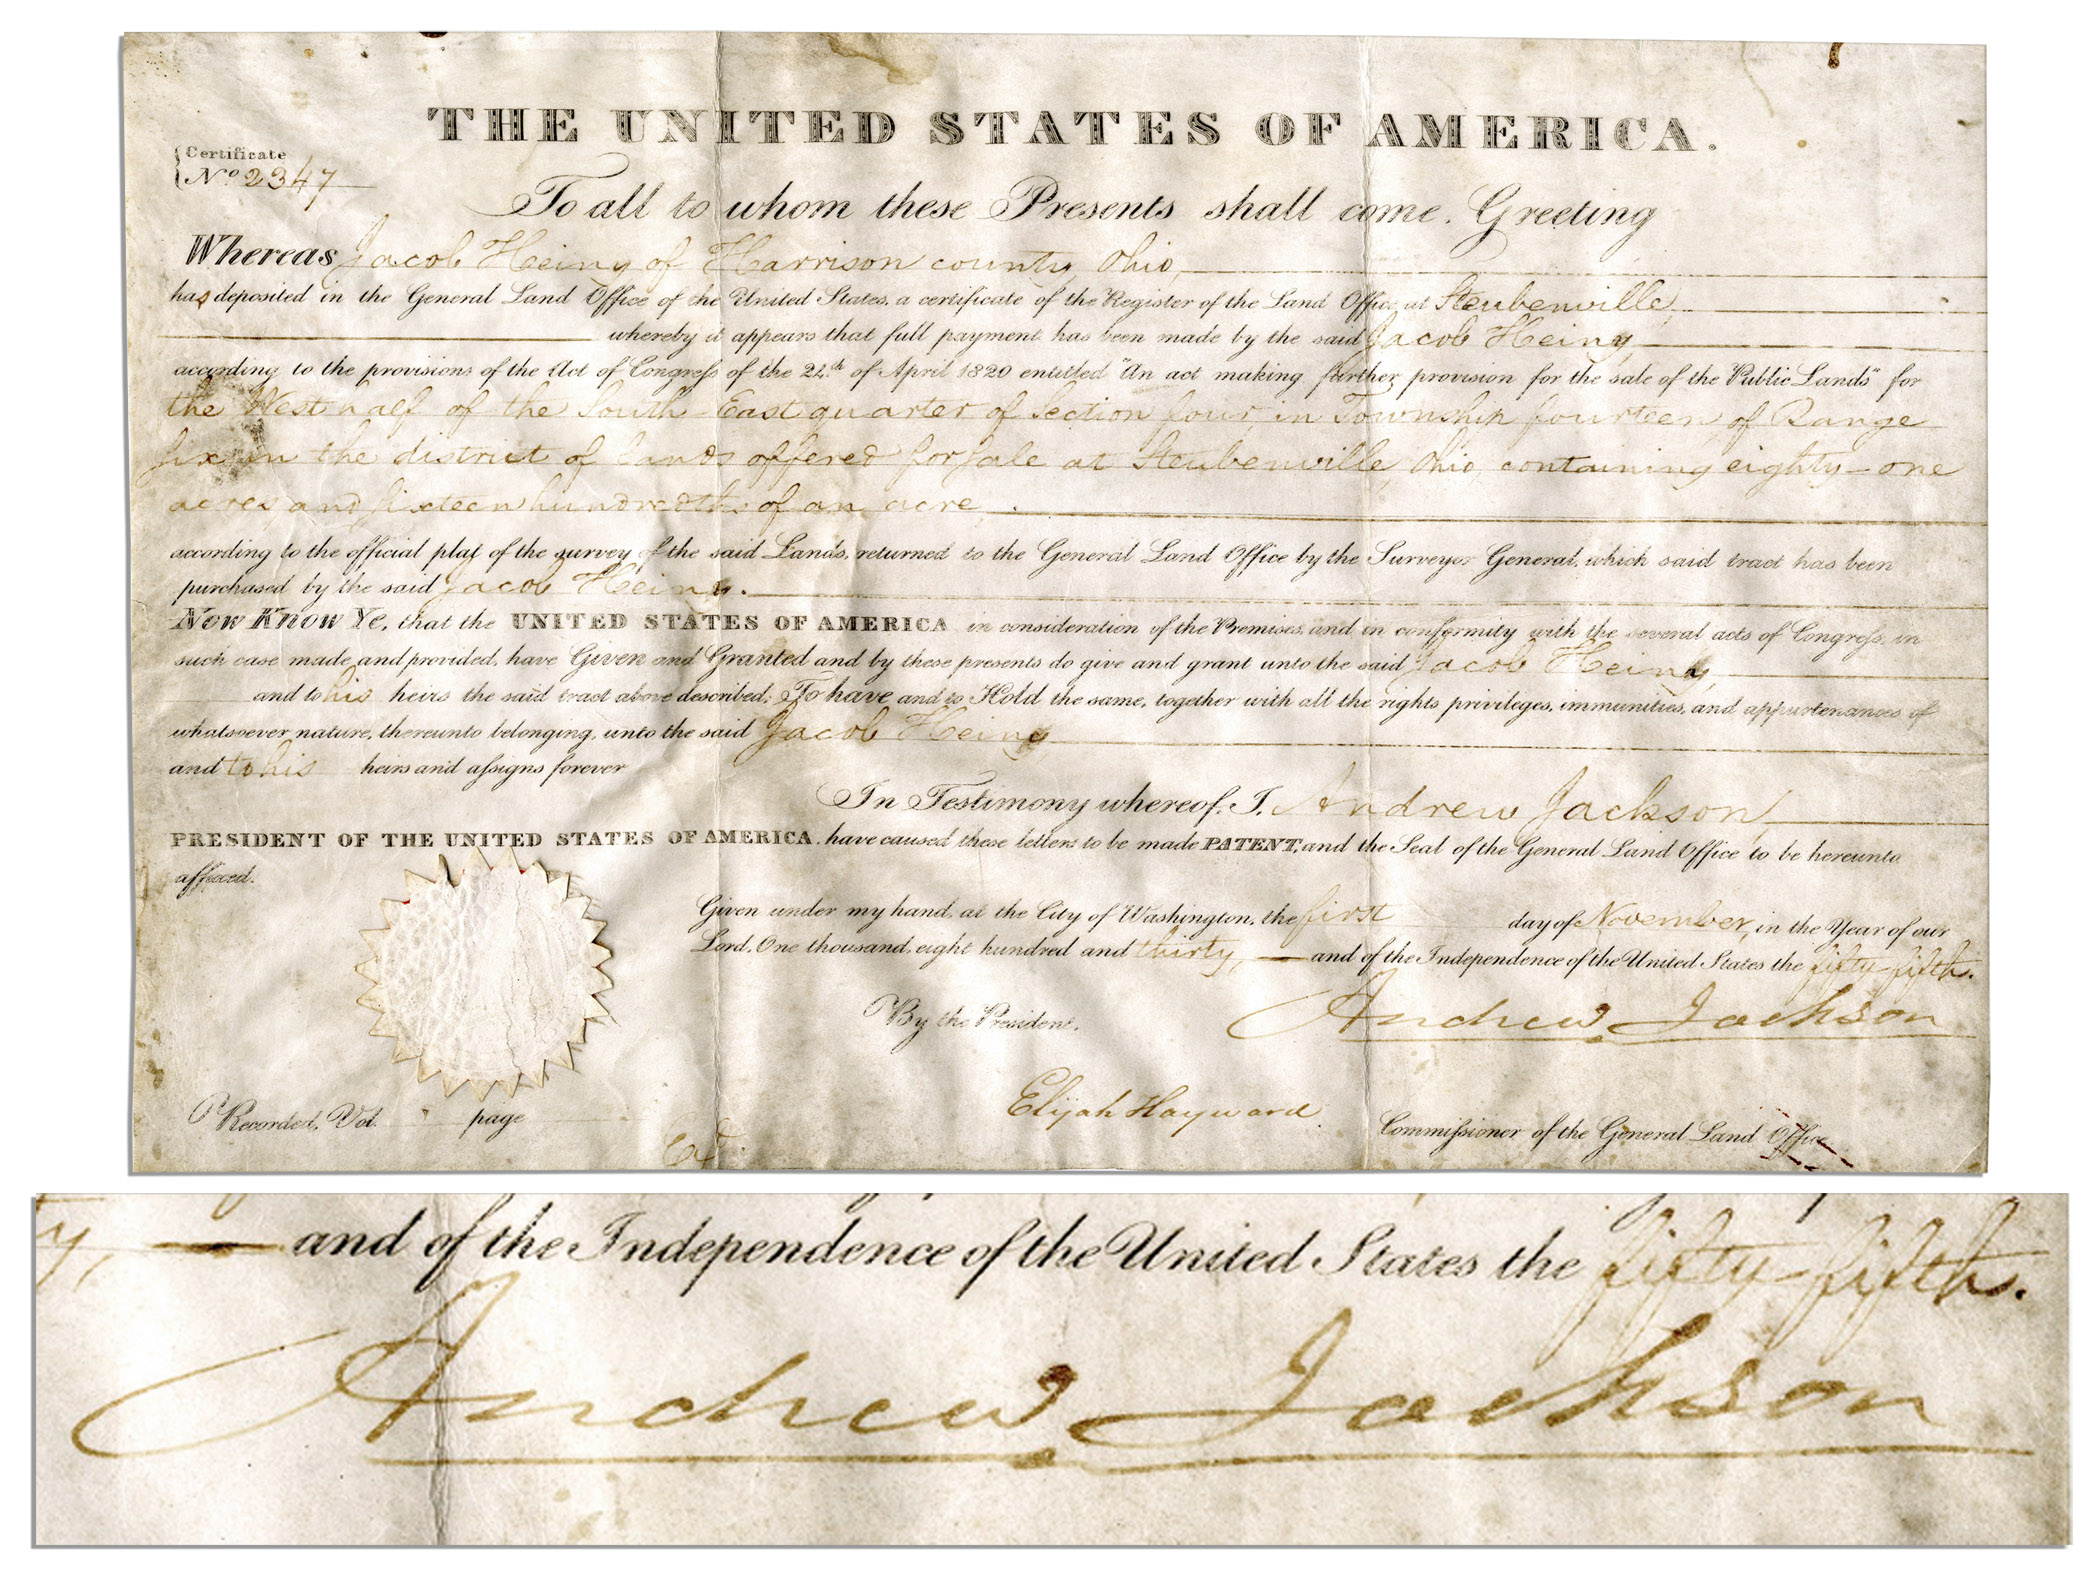 THE UNITED STATES OF AMERICA.
Certificate
No 2347
To all to whom these Presents shall come, Greeting
Whereas Jacob Heiny of Harrison county, Ohio,
has deposited in the General Land Office of the United States, a certificate of the Register of the Land Office at Steubenville,
whereby it appears that full payment has been made by the said Jacob Heiny,
according to the provisions of the Act of Congress of the 24th of April 1820 entitled "An act making further provision for the sale of the Public Lands" for
the West half of the South-East quarter of Section four, in Township fourteen, of Range
six in the district of lands offered for sale at Steubenville, Ohio, containing eighty-one
acres, and sixteen hundredths of an acre,
according to the official plat of the survey of the said Lands, returned to the General Land Office by the Surveyor General, which said tract has been
purchased by the said Jacob Heiny.
Now Know Ye, that the UNITED STATES OF AMERICA in consideration of the Premises, and in conformity with the several acts of Congress, in
such case made, and provided, have Given and Granted and by these presents do give and grant unto the said Jacob Heiny,
and to his heirs the said tract above described; To have, and to Hold the same, together with all the rights privileges, immunities, and appurtenances of
whatsoever nature, thereunto belonging, unto the said Jacob Heiny,
and to his heirs and assigns forever
In Testimony whereof, I, Andrew Jackson,
PRESIDENT OF THE UNITED STATES OF AMERICA, have caused these letters to be made PATENT, and the Seal of the General Land Office to be hereunto
affixed.
Given under my hand, at the City of Washington, the first day of November, in the Year of our
Lord, One thousand, eight hundred and thirty, and of the Independence of the United States the fifty-fifth.
By the President,
Andrew Jackson
Elijah Hayward
Commissioner of the General Land Office
Recorded, Vol. page
and of the Independence of the United States the fifty-fifth.
Andrew Jackson